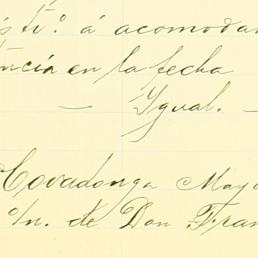 s ti.º á acomodar
ncia en la fecha
— Igual. —
Covadonga Mayo
o/n. de Don Fran